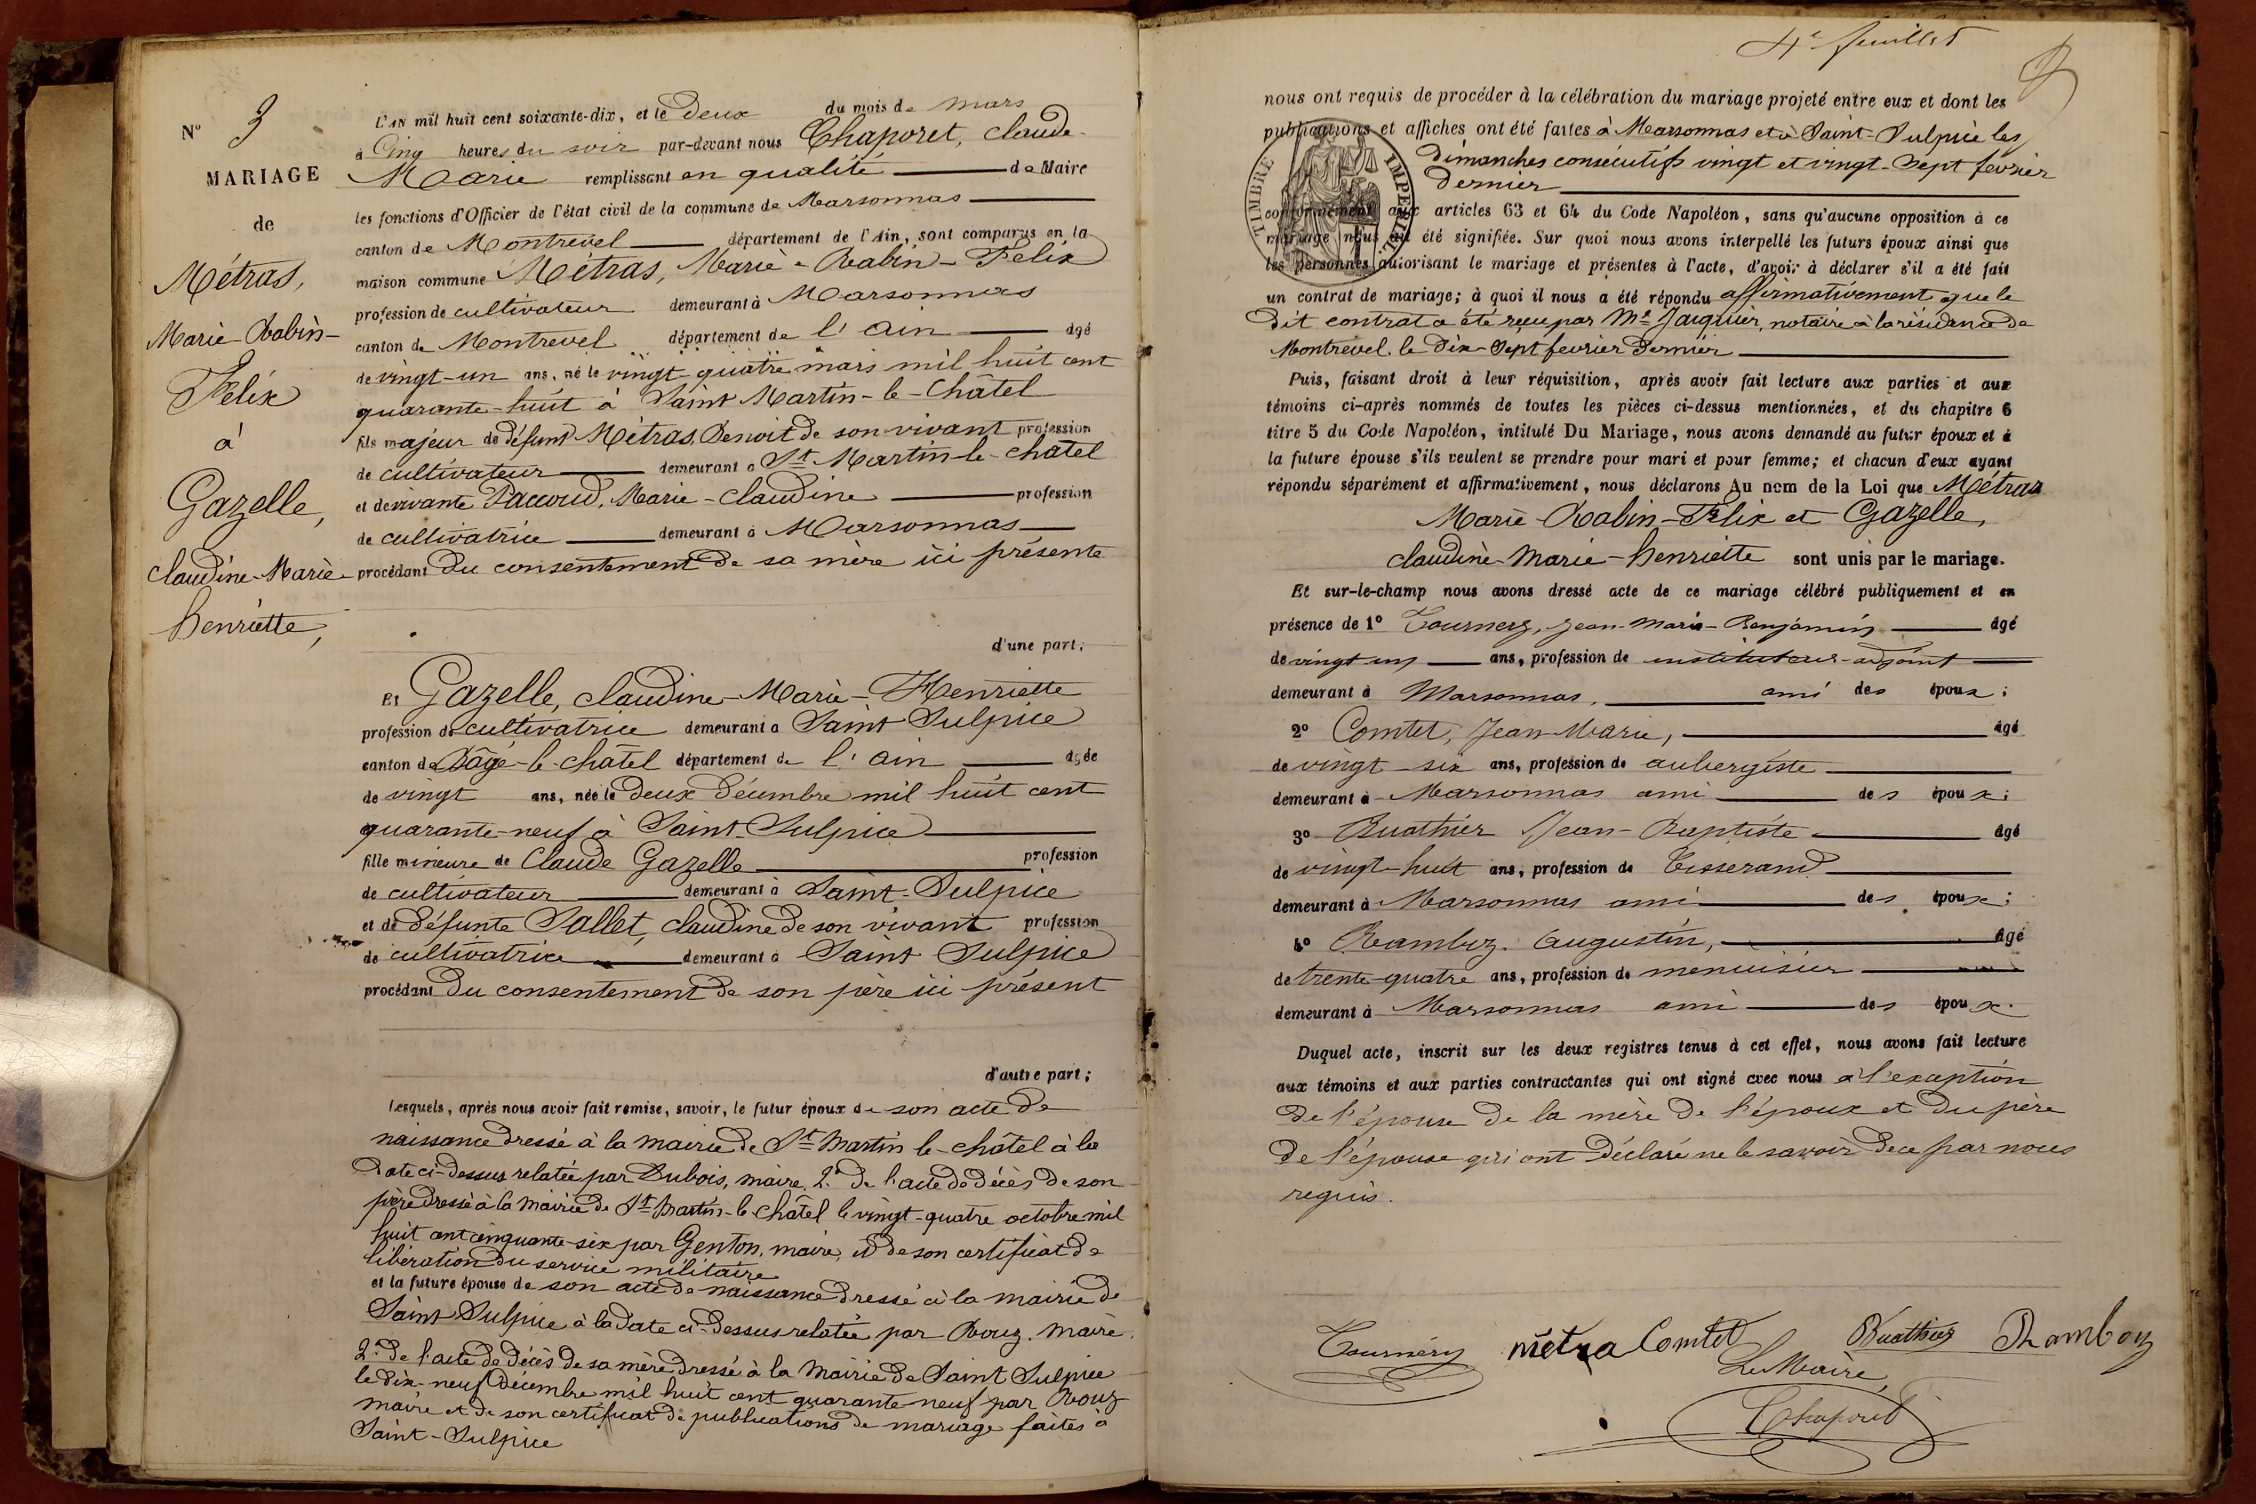 N° 3
MARIAGE
de
Métras,
Marie-Rabin-
Félix
à
Gazelle,
Claudine-Marie-
henriette,
L'AN mil huit cent soixante-dix, et le Deux du mois de mars
à Cinq heures du soir par-devant nous Chaporet, Claude-
Marie remplissant en qualité de Maire
les fonctions d'Officier de l'état civil de la commune de Marsonnas
canton de Montrevel département de l'Ain, sont comparus en la
maison commune Métras, Marie-Rabin-Félix
profession de cultivateur demeurant à Marsonnas
canton de Montrevel département de l'ain âgé
de vingt-un ans, né le vingt quatre mars mil huit cent
quarante-huit à Saint Martin-le-Châtel
fils majeur de défunt Métras, Benoit de son vivant profession
de cultivateur demeurant à St Martin-le-Châtel
et de vivante Paccoud, Marie-Claudine profession
de cultivatrice demeurant à Marsonnas
procédant du consentement de sa mère ici présente
d'une part;
Et Gazelle, Claudine-Marie-Henriette
profession de cultivatrice demeurant à Saint Sulpice
canton de Bâgé-le-châtel département de l'ain âgée
de vingt ans, née le deux décembre mil huit cent
quarante-neuf à Saint-Sulpice
fille mineure de Claude Gazelle profession
de cultivateur demeurant à Saint-Sulpice
et de défunte Sallet, Claudine de son vivant profession
de cultivatrice demeurant à Saint Sulpice
procédant du consentement de son père ici présent
d'autre part;
Lesquels, après nous avoir fait remise, savoir, le futur époux de son acte de
naissance dressé à la mairie de St Martin le-châtel à la
date ci-dessus relatée par Dubois, maire, 2° de l'acte de décès de son
père dressé à la mairie de St Martin-le-Châtel le vingt-quatre octobre mil
huit cent cinquante-six par Genton, maire, et de son certificat de
libération du service militaire
et la future épouse de son acte de naissance dressé à la mairie de
Saint Sulpice à la date ci-dessus relatée par Rouz, maire,
2° de l'acte de décès de sa mère dressé à la Mairie de Saint Sulpice
le dix-neuf décembre mil huit cent quarante-neuf par Rouz
maire et de son certificat de publications de mariage faites à
Saint-Sulpice
4e feuillet
nous ont requis de procéder à la célébration du mariage projeté entre eux et dont les
publications et affiches ont été faites à Marsonnas et à Saint-Sulpice les
dimanches consécutifs vingt et vingt-sept février
dernier
TIMBRE IMPERIAL
conformément aux articles 63 et 64 du Code Napoléon, sans qu'aucune opposition à ce
mariage nous ait été signifiée. Sur quoi nous avons interpellé les futurs époux ainsi que
les personnes autorisant le mariage et présentes à l'acte, d'avoir à déclarer s'il a été fait
un contrat de mariage; à quoi il nous a été répondu affirmativement que le
dit contrat a été reçu par Me Jacquier, notaire à la résidence de
Montrevel, le dix-sept février dernier
Puis, faisant droit à leur réquisition, après avoir fait lecture aux parties et aux
témoins ci-après nommés de toutes les pièces ci-dessus mentionnées, et du chapitre 6
titre 5 du Code Napoléon, intitulé Du Mariage, nous avons demandé au futur époux et à
la future épouse s'ils veulent se prendre pour mari et pour femme; et chacun d'eux ayant
répondu séparément et affirmativement, nous déclarons Au nom de la Loi que Métras
Marie-Rabin-Félix et Gazelle,
Claudine-Marie-henriette sont unis par le mariage.
Et sur-le-champ nous avons dressé acte de ce mariage célébré publiquement et en
présence de 1° Tournery, Jean-Marie-Benjamin âgé
de vingt un ans, profession de instituteur-adjoint
demeurant à Marsonnas, ami des époux;
2° Comtet, Jean-Marie, âgé
de vingt-six ans, profession de aubergiste
demeurant à Marsonnas ami des époux;
3° Buathier Jean-Baptiste âgé
de vingt-huit ans, profession de tisserand
demeurant à Marsonnas ami des époux;
4° Ramboz, Augustin, âgé
de trente-quatre ans, profession de menuisier
demeurant à Marsonnas ami des époux.
Duquel acte, inscrit sur les deux registres tenus à cet effet, nous avons fait lecture
aux témoins et aux parties contractantes qui ont signé avec nous à l'exception
de l'épouse de la mère de l'époux et du père
de l'épouse qui ont déclaré ne le savoir de ce par nous
requis.
Tournery métra Comtet Buathier Ramboz
Le Maire,
Chaporet